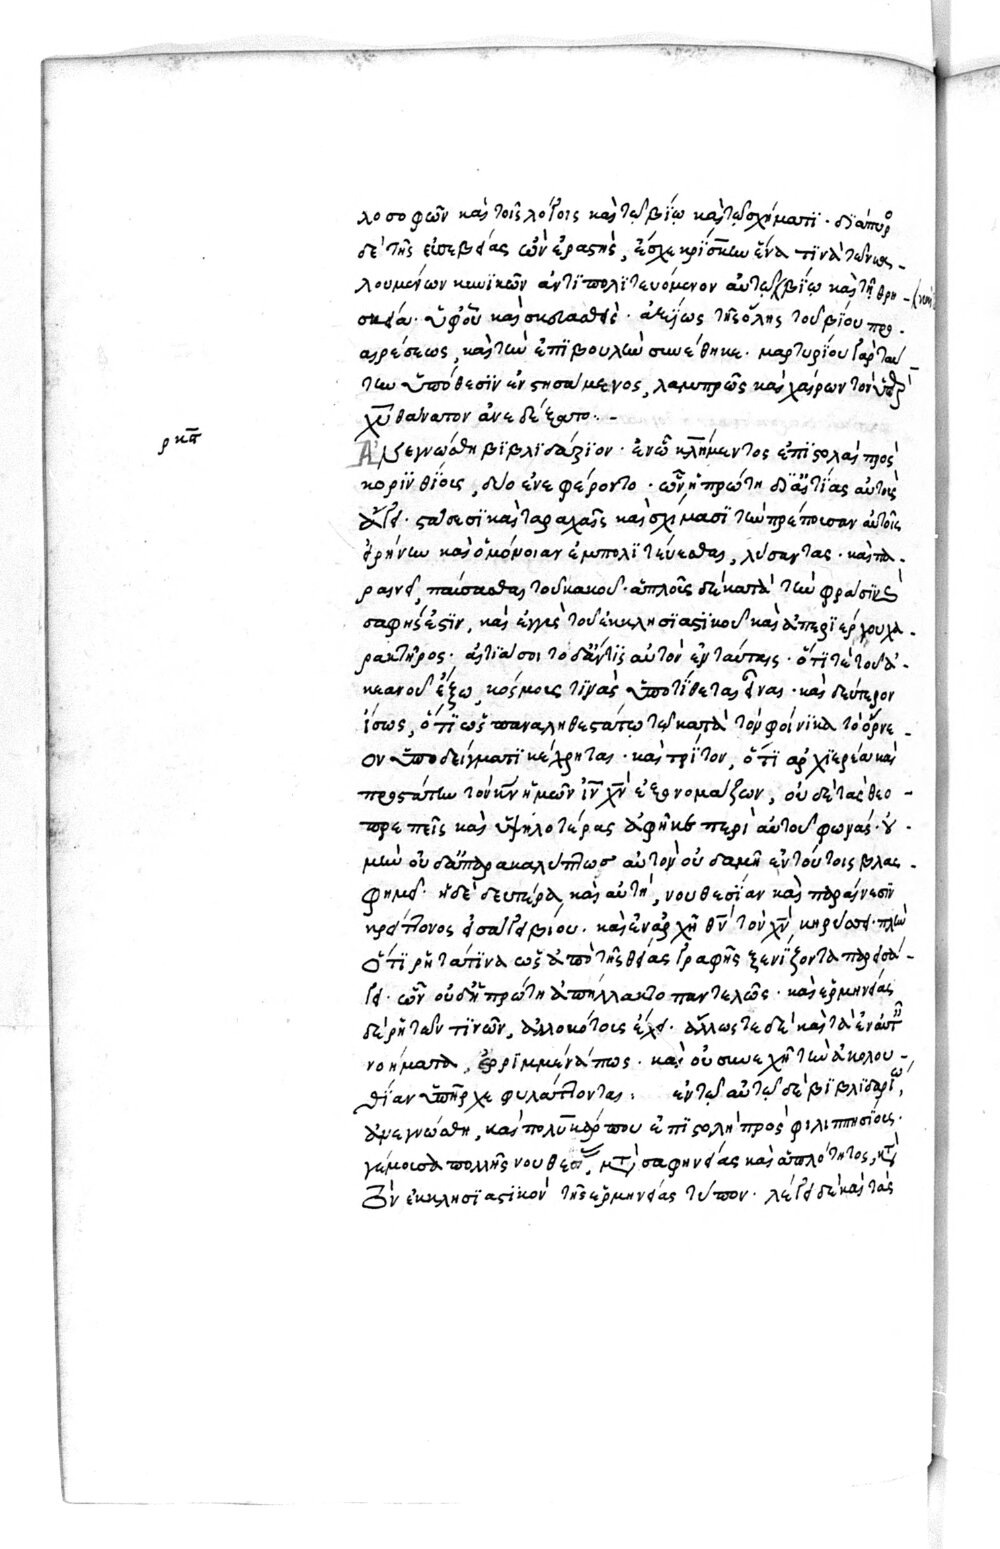 λοσοφῶν καὶ τοῖς λόγοις καὶ τῷ βίῳ καὶ τῷ σχήματι. διάπυρος
δὲ τῆς εὐσεβείας ὢν ἐραστὴς, ἔσχε κρίσκεντα ἕνα τινὰ τῶν κα-
λουμένων κυνικῶν ἀντιπολιτευόμενον αὐτῷ τῷ βίῳ καὶ τῇ θρη-
σκείᾳ. ὑφ' οὗ καὶ σκευασθεὶς. ἀξίως τῆς ὅλης τοῦ βίου προ-
αιρέσεως, καὶ τὴν ἐπιβουλὴν συνέθηκε. μαρτυρίου γὰρ ταύ
την ὑπόθεσιν ἐνστησάμενος, λαμπρῶς καὶ χαίρων τὸν ὑπὲρ
χυ θάνατον ἀνεδέξατο.
ρκς
Ἀνεγνώσθη βιβλιδάριον. ἐν ᾧ κλήμεντος ἐπιστολαὶ πρὸς
κορινθίους, δύο ἐνεφέροντο. ὧν ἡ πρώτη δι' αἰτίας αὐτοὺς
ἄγει. στάσεσι καὶ ταραχαῖς καὶ σχίσμασι τὴν πρέπουσαν αὐτοῖς
εἰρήνην καὶ ὁμόνοιαν ἐμπολιτεύεσθαι, λύσαντας. καὶ πα-
ραινεῖ, παύσασθαι τοῦ κακοῦ. ἁπλοῦς δὲ κατὰ τὴν φράσιν καὶ
σαφής ἐστιν, καὶ ἐγγὺς τοῦ ἐκκλησιαστικοῦ καὶ ἀπεριέργου χα-
ρακτῆρος. αἰτιάσοιτο δ' ἄν τις αὐτὸν ἐν ταύταις. ὅτι τε τοῦ ὠ-
κεανοῦ ἔξω, κόσμους τινὰς ὑποτίθεται εἶναι. καὶ δεύτερον
ἴσως, ὅτι ὡς παναληθεστάτῳ τῷ κατὰ τὸν φοίνικα τὸ ὄρνε-
ον ὑποδείγματι κέχρηται. καὶ τρίτον, ὅτι ἀρχιερέα καὶ
προστάτην τὸν κν ἡμῶν ιν χν ἐξονομάζων, οὐδὲ τὰς θεο-
πρεπεῖς καὶ ὑψηλοτέρας ἀφῆκε περὶ αὐτοῦ φωνάς. οὐ
μὴν οὐδ' ἀπαρακαλύπτως αὐτὸν οὐδαμῇ ἐν τούτοις βλας-
φημεῖ. ἡ δὲ δευτέρα, καὶ αὐτὴ, νουθεσίαν καὶ παραίνεσιν
κρείττονος εἰσάγει βίου. καὶ ἐν ἀρχῇ θν τὸν χν κηρύσσει. πλὴν
ὅτι ῥητά τινα ὡς ἀπὸ τῆς θείας γραφῆς ξενίζοντα παρεισά-
γει. ὧν οὐδ' ἡ πρώτη ἀπήλλακτο παντελῶς. καὶ ἑρμηνείας
δὲ ῥητῶν τινῶν, ἀλλοκότους ἔχει. ἄλλως τε δὲ καὶ τὰ ἐν αὐταῖς
νοήματα, ἐρριμμένα πως. καὶ οὐ συνεχῆ τὴν ἀκολου-
θίαν ὑπῆρχε φυλάττοντα: ἐν τῷ αὐτῷ δὲ βιβλιδαρίῳ,
ἀνεγνώσθη, καὶ πολυκάρπου ἐπιστολὴ πρὸς φιλιππησίους.
γέμουσα πολλῆς νουθεσίας, μετὰ σαφηνείας καὶ ἁπλότητος, κατὰ
τὸν ἐκκλησιαστικὸν τῆς ἑρμηνείας τύπον. λέγει δὲ καὶ τὰς